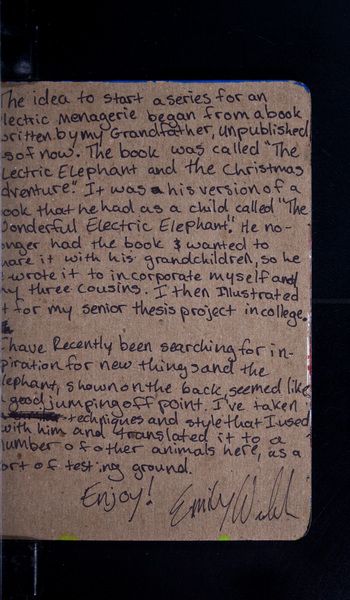 The idea to start a series for an
lectric menagerie began from a book
written by my Grandfather, unpublished
as of now. The book was called "The
lectric Elephant and the Christmas
dventure." It was his version of a
ook that he had as a child called "The
onderful Electric Elephant." He no-
onger had the book & wanted to
hare it with his grandchildren, so he
wrote it to incorporate myself and
my three cousins. I then Illustrated
t for my senior thesis project in college.
I have Recently been searching for in-
piration for new things and the
lephant, shown on the back, seemed like
a good jumping off point. I've taken
techniques and style that I used
with him and translated it to a
number of other animals here, as a
ort of testing ground.
Enjoy! Emily